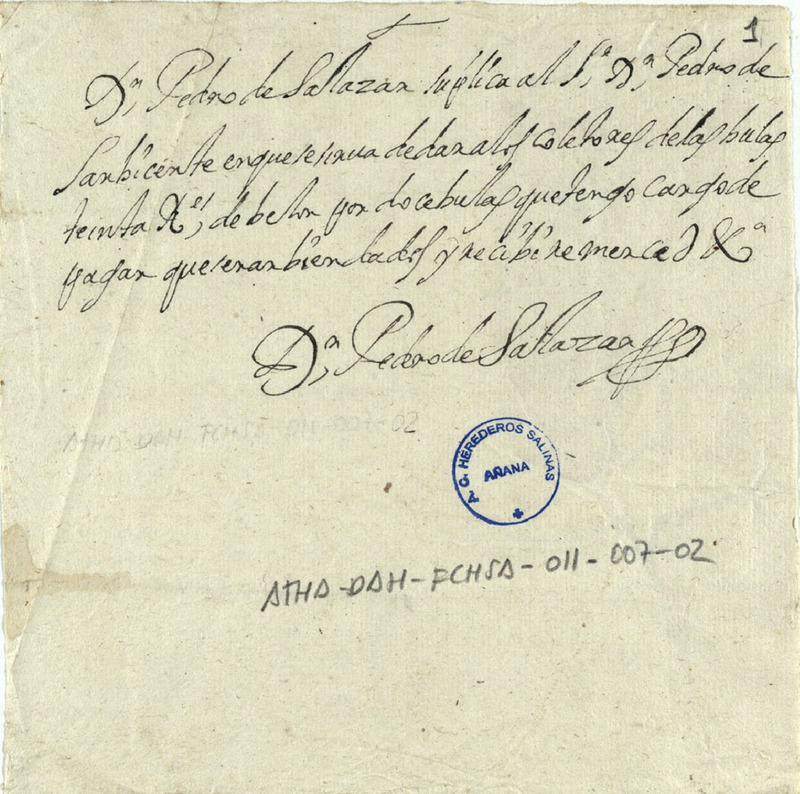 1
Dn, Pedro de Sallazar suplica al Sr, Dn, Pedro de
Sanbicente enquesesirua dedar alos coletores delas bulas
teinta Res, de bellon por docebulas quetengo cargo de
pagar queseran bien dados y recibire merced &a
Dn, Pedro de Sallazar
ATHA-DAH-FCHSA-011-007-02
A. G. HEREDEROS SALINAS
AÑANA
ATHA-DAH-FCHSA-011-007-02